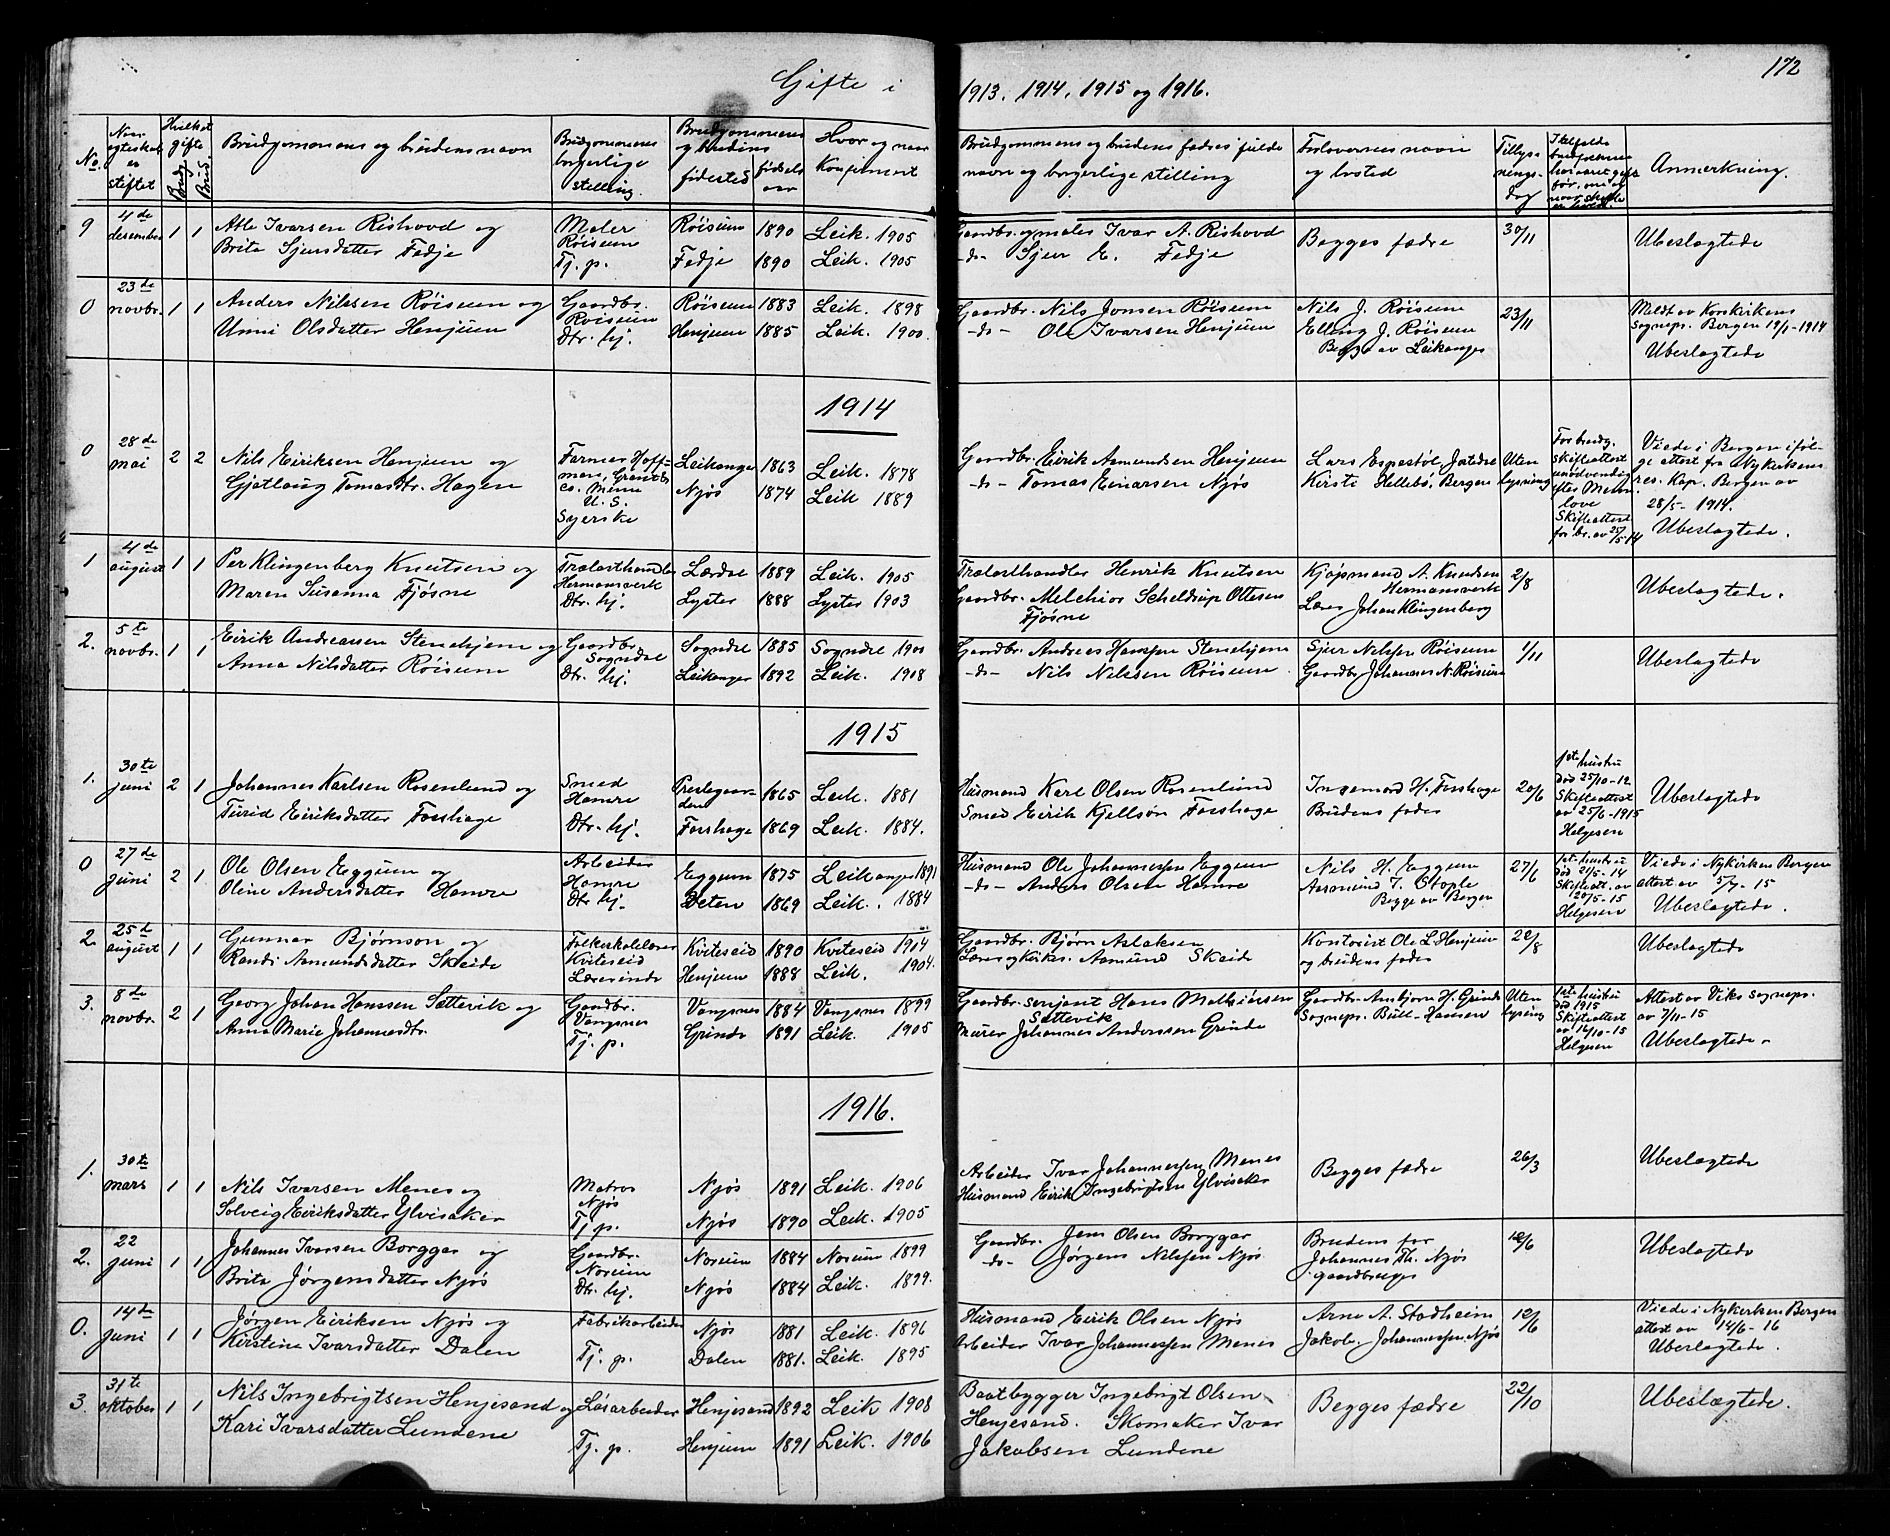 Gifte i 1913. 1914, 1915 og 1916.
172
No.
Naar egteskab er stiftet
Hvilket gifte
Brudg.
Brud.
Brudgommens og brudens navn
Brudgommens borgerlige stilling.
Brudgommens og brudens fødested
fødsels aar
Hvor og naar Konfirmert
Brudgommens og brudens fædres fulde navn og borgerlige stilling
Forlovernes navn og bosted
Tillysningsdag
Anmerkning.
9 4de desember 1 1 Atle Ivarsen Rishovd og Maler Røisum Røisum 1890 Leik. 1905 Gaardbr. og maler Ivar A. Rishovd Begges fædre 30/11 Ubeslægtede
Brita Sjursdatter Fedje Tj. p. Fedje 1890 Leik. 1905 -ds- Sjur E. Fedje
0 23de novbr. 1 1 Anders Nilssen Røisum og Gaardbr. Røisum Røisum 1883 Leik. 1898 Gaardbr. Nils Jonsen Røisum Nils J. Røisum 23/11 Meldt av Korskirkens
Unni Olsdatter Henjum Dtr. hj. Henjum 1885 Leik. 1900. -ds- Ole Ivarsen Henjum Elling J. Røisum Sognepr. Bergen 19/1-1914
Begge av Leikanger Ubeslægtede
1914
0 28de mai 2 2 Nils Eiriksen Henjum og Farmer Hoffman, Grant Co. Minn U.S. Leikanger 1863 Leik. 1878 Gaardbr. Eirik Asmundsen Henjum Lars Espestøl, Uten lysning
Gjatlaug Tomasdtr. Hagen Syerske Njøs 1874 Leik 1889 -ds- Tomas Einarsen Njøs Kirsti Hellebø, Bergen
For brudg. skifteattest unødvendig efter Minn. love Skifteattest for br. av 25/5-14
Viede i Bergen ifølge attest fra Nykirkens res. Kap. Bergen av 28/5-1914. Ubeslægtede.
1 4de august 1 1 Per Klingenberg Knutsen og Trælasthandler Hermansverk Lærdal 1889 Leik. 1905 Trælasthandler Henrik Knutsen Kjøpmand A. Knudsen Hermansverk 2/8 Ubeslægtede.
Maren Susanna Fjøsne Dtr. hj. Lyster 1888 Lyster 1903 Gaardbr. Melchior Scheldrup Ottesen Fjøsne Lærer Johan Klingenberg
2. 5te novbr. 1 1 Eirik Andreassen Stenehjem og Gaardbr. Sogndal Sogndal 1885 Sogndal 1900 Gaardbr. Andreas Hanssen Stenehjem Sjur Nilssen Røisum 1/11 Ubeslægtede
Anna Nilsdatter Røisum Dtr. hj. Leikanger 1892 Leik. 1908 -ds- Nils Nilssen Røisum Gaardbr. Johannes N. Røisum
1915
1. 30te juni 2 1 Johannes Karlsen Rosenlund og Smed Hamre Prestegaarden 1865 Leik. 1881 Husmand Karl Olsen Rosenlund Ingemond H. Forshage 20/6 Ubeslægtede
Turid Eiriksdatter Forshage Dtr. hj. Forshage 1869 Leik. 1884. Smed Eirik Kjellsøn Forshage Brudens fader
1st hustru død 25/10-12 Skifteattest av 25/6-1915 Helgesen
0 27de juni 2 1 Ole Olsen Eggum og Arbeider Hamre Eggum 1875 Leikanger 1891 Husmand Ole Johannessen Eggum Nils H. Eggum 27/6 Viede i Nykirken Bergen
Oline Andersdatter Hamre Dtr. hj. Deten 1869 Leik. 1884 -ds- Anders Olsen Hamre Aasmund T. Stople attest av 5/7-15
Begge av Bergen Ubeslægtede.
1st hustru død 21/5-14 Skifteatt. av 20/5-15 Helgesen
2. 25de august 1 1 Gunnar Bjørnson og Folkeskolelærer Kviteseid Kviteseid 1890 Kviteseid 1904 Gaardbr. Bjørn Aslaksen Kontorist Ole L. Henjum 22/8 Ubeslægtede
Randi Aamundsdatter Skeide Lærerinde Henjum 1888 Leik. 1904. Lærer og kirkes. Aamund Skeid og brudens fader
3. 8de novbr. 2 1 Georg Johan Hanssen Sættevik og Gaardbr. Vangsnes Vangsnes 1884 Vangsnes 1899 Gaardbr. serjant Hans Mathiassen Sættevik Gaardbr. Ansbjørn H. Grinde Uten lysning Attest av Viks sognepr.
Anna Marie Johannesdtr. Tj. p. Grinde 1891 Leik. 1905 Murer Johannes Anderssen Grinde Sognepr. Bull-Hansen av 7/11-15
Ubeslægtede.
1ste hustru død 1915 Skifteattest av 16/10-15 Helgesen
1916.
1. 30te mars 1 1 Nils Ivarsen Menes og Matros Njøs Njøs 1891 Leik. 1906 Arbeider Ivar Johannessen Menes Begges fædre 26/3 Ubeslægtede
Solveig Eiriksdatter Ylvisaker Tj. p. Njøs 1890 Leik. 1905 Husmand Eirik Ingebrigtsen Ylvisaker
2. 22 juni 1 1 Johannes Ivarsen Borggar og Gaardbr. Norum Norum 1884 Norum 1899 Gaardbr. Jens Olsen Borggar Brudens far 18/6 Ubeslægtede
Brita Jørgensdatter Njøs Dtr. hj. Njøs 1884 Leik. 1899. ds- Jørgens Nilssen Njøs Johannes Th. Njøs
gaardbruger
0. 14de juni 1 1 Jørgen Eiriksen Njøs og Fabrikarbeider Njøs 1881 Leik. 1896 Husmand Eirik Olsen Njøs Arne A. Stadheim 12/6 Viede i Nykirken Bergen
Kirstine Ivarsdatter Dalen Tj. p. Dalen 1881. Leik. 1895 Arbeider Ivar Johannessen Menes Jakob Johannessen Njøs attest av 14/6-16
Ubeslægtede.
3. 31te oktober 1 1 Nils Ingebrigtsen Henjesand og Løsarbeider Henjesand 1892 Leik 1908 Baatbygger Ingebrigt Olsen Begges fædre 22/10 Ubeslægtede.
Kari Ivarsdatter Lundene Tj. p. Henjum 1891 Leik. 1906 Henjesand. Skomaker Ivar
Jakobsen Lundene